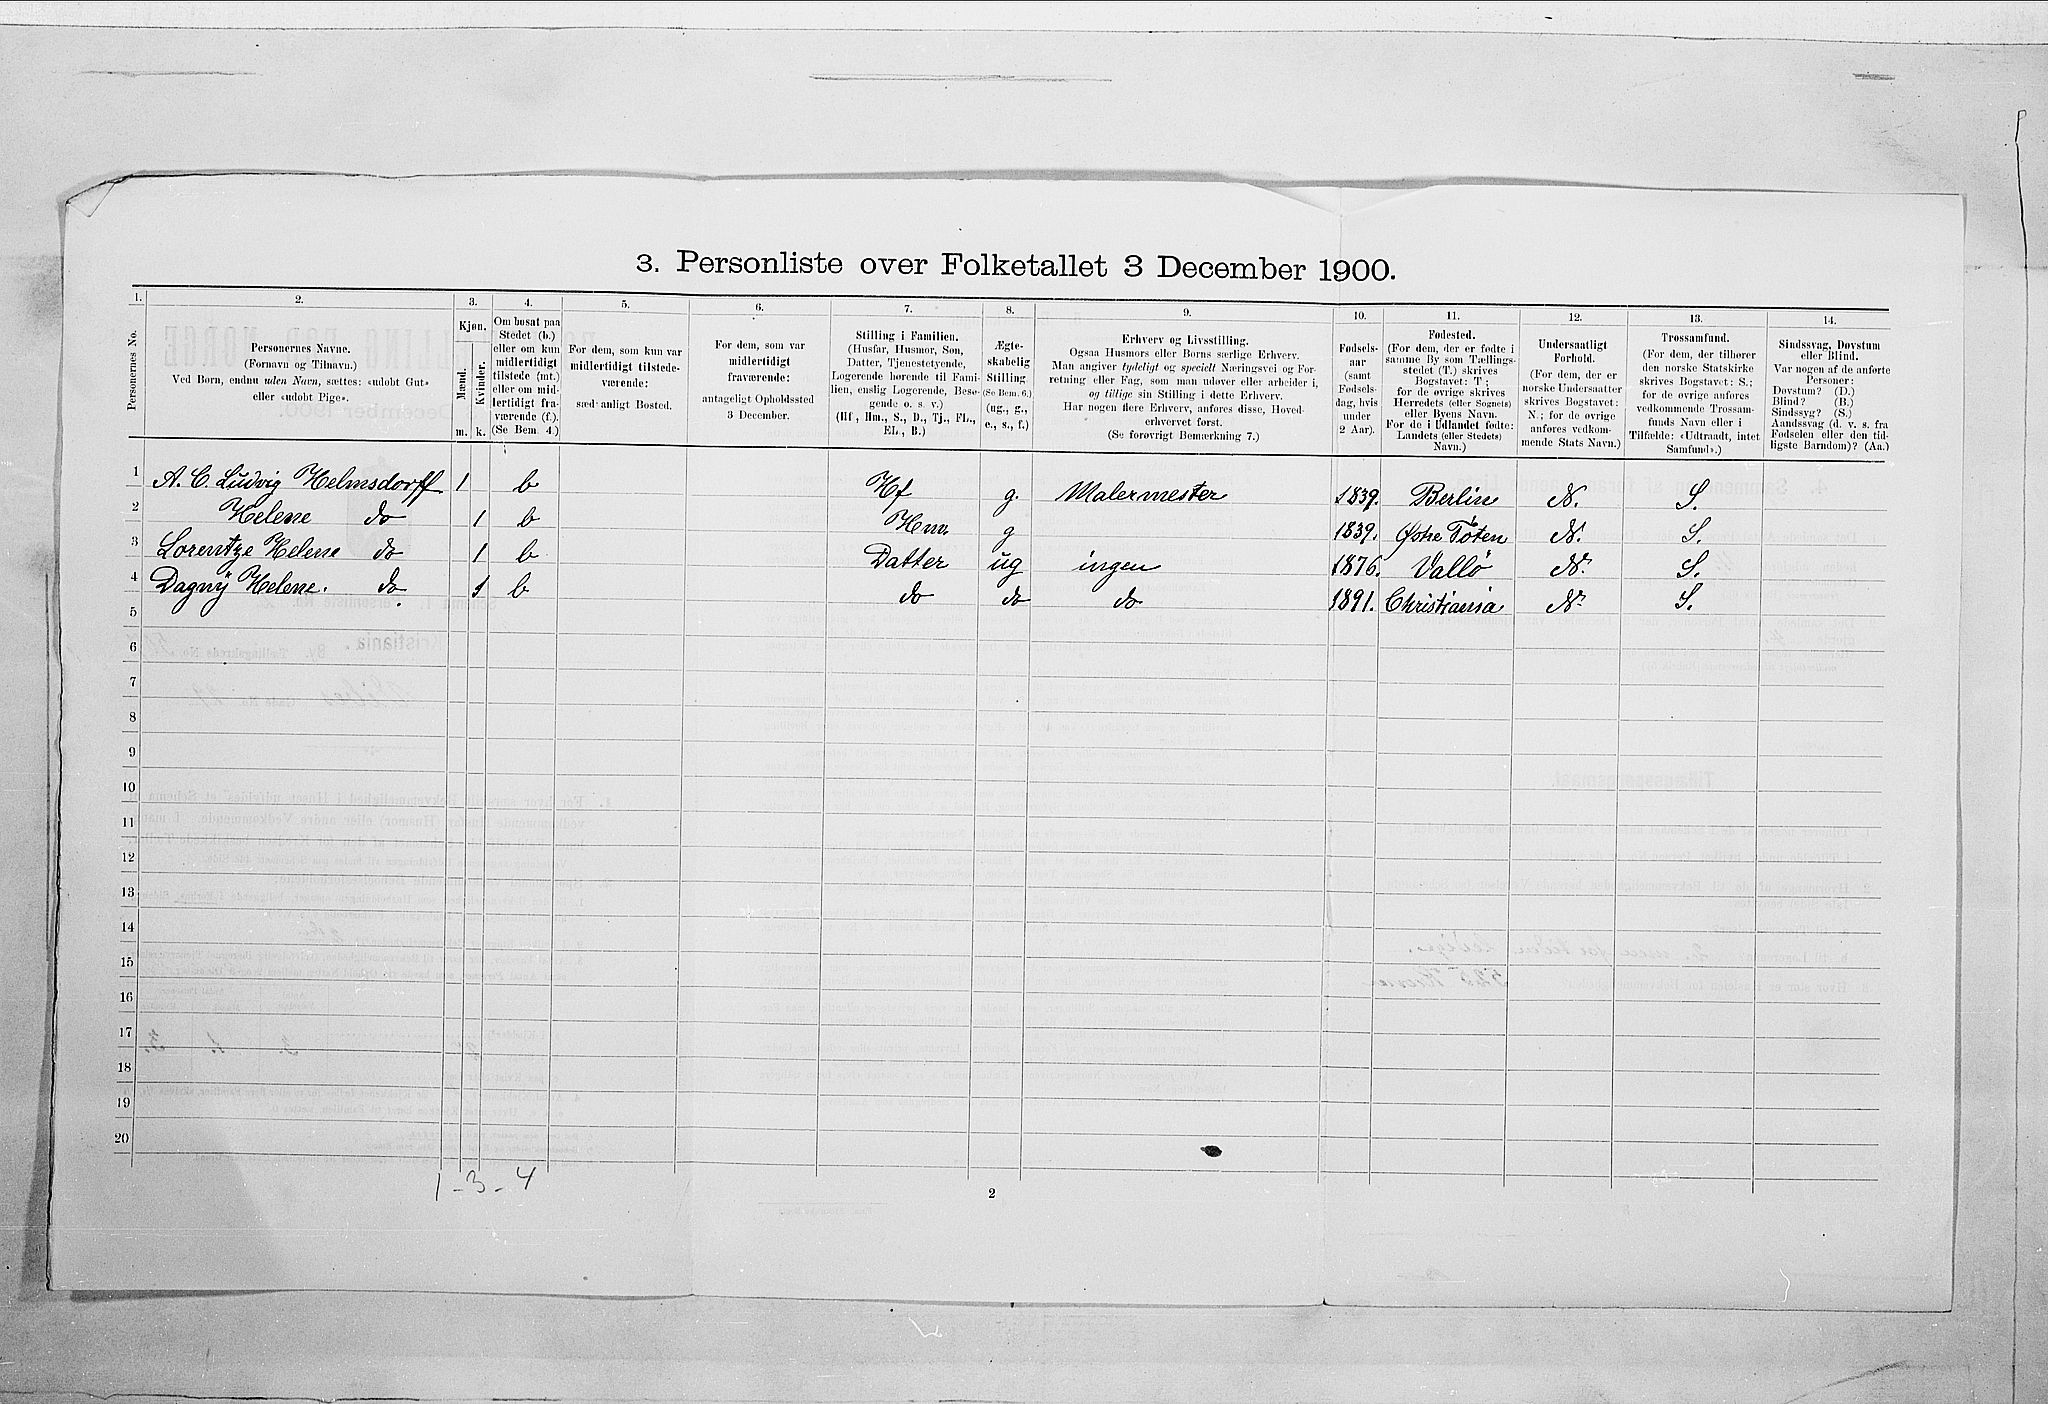 3. Personliste over Folketallet 3 December 1900.
1. 2. 3. 4. 5. 6. 7. 8. 9. 10. 11. 12. 13. 14.
Personernes No.
Personernes Navne.
(Fornavn og Tilnavn.)
Ved Børn, endnu uden Navn, sættes: «udøbt Gut»
eller «udøbt Pige».
Kjøn.
Mænd.
Kvinder.
m. k.
Om bosat paa
Stedet (b.)
eller om kun
midlertidigt
tilstede (mt.)
eller om mid-
lertidigt fra-
værende (f.).
(Se Bem. 4.)
For dem, som kun var
midlertidigt tilstede-
værende:
sædvanligt Bosted.
For dem, som var
midlertidigt
fraværende:
antageligt Opholdssted
3 December.
Stilling i Familien.
(Husfar, Husmor, Søn,
Datter, Tjenestetyende,
Logerende hørende til Fami-
lien, enslig Logerende, Besø-
gende o. s. v.)
(Hf., Hm., S., D., Tj., FL.,
EL., B.)
Ægte-
skabelig
Stilling
(Se Bem. 6.)
(ug., g.,
e., s., f.)
Erhverv og Livsstilling.
Ogsaa Husmors eller Børns særlige Erhverv.
Man angiver tydeligt og specielt Næringsvei og For-
retning eller Fag, som man udøver eller arbeider i,
og tillige sin Stilling i dette Erhverv.
Har nogen flere Erhverv, anføres disse, Hoved-
erhvervet først.
(Se forøvrigt Bemærkning 7.)
Fødsels-
aar
(samt
Fødsels-
dag, hvis
under
2 Aar).
Fødested.
(For dem, der er fødte i
samme By som Tællings-
stedet (T.) skrives
Bogstavet: T;
for de øvrige skrives
Herredets (eller Sognets)
eller Byens Navn.
For de i Udlandet fødte:
Landets (eller Stedets)
Navn.)
Undersaatligt
Forhold.
(For dem, der er
norske Undersaatter
skrives Bogstavet:
N.; for de øvrige
anføres vedkom-
mende Stats Navn.)
Trossamfund.
(For dem, der tilhører
den norske Statskirke
skrives Bogstavet: S.;
for de øvrige anføres
vedkommende Trossam-
funds Navn eller i
Tilfælde: «Udtraadt, intet
Samfund».)
Sindssvag, Døvstum
eller Blind.
Var nogen af de anførte
Personer:
Døvstum? (D.)
Blind? (B.)
Sindssyg? (S.)
Aandssvag (d. v. s. fra
Fødselen eller den tid-
ligste Barndom)? (Aa.)
1 A. C. Ludvig Helmsdorff 1 b Hf g. Malermester 1839. Berlin N. S.
2 Helene do 1 b Hm. g 1839. Østre Toten N. S.
3 Lorentze Helene do 1 b Datter ug ingen 1876. Vallø N. S.
4 Dagny Helene. do. 1 b do do do 1891. Christiania N. S.
5
6
7
8
9
10
11
12
13
14
15
16
17
18
19
20
1 - 3 - 4
2